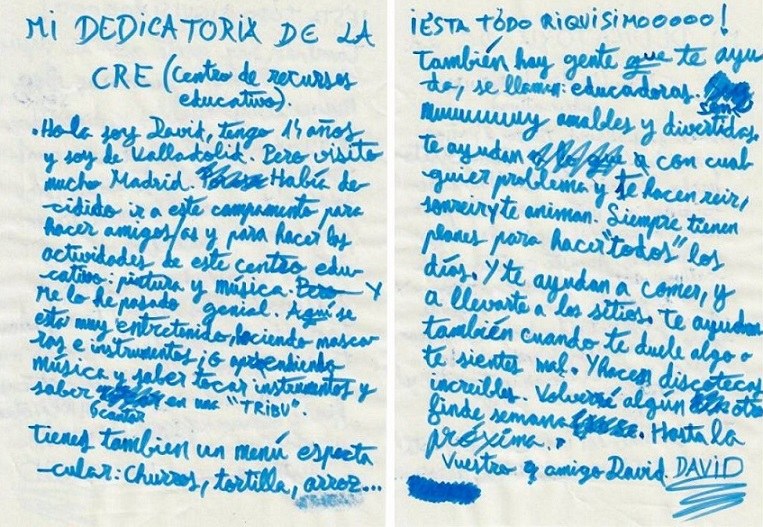 MI DEDICATORIA DE LA
CRE (Centro de recursos
educativo).
. Hola soy David, tengo 14 años
y soy de Valladolid. Pero visito
mucho Madrid. Había de-
cidido ir a este campamento para
hacer amigos/as y para hacer los
actividades de este centro edu-
cativo: pintura y música. Pero y
me lo he pasado genial. Aquí se
esta muy entretenido, haciendo masca
ras e instrumentos ¡O aprendiendo
música y saber tocar instrumentos y
saber en una "TRIBU".
o cantar
tienes tambien un menú especta
-cular: Churros, tortilla, arroz...
¡ESTA TODO RIQUISIMOOOOO!
también hay gente que te ayu
da, se llaman: educadoras.
son
muuuuuuuy amables y divertidas,
te ayudan a con cual
quier problema y te hacen reir,
sonreir y te animan. Siempre tienen
planes para hacer "todos" los
días. Y te ayudan a comer, y
a llevarte a los sitios. Te ayudan
también cuando te duele algo o
te sientes mal. Y hacen discotecas
increibles. Volveré algún otro
finde semana. Hasta la
próxima.
Vuestro amigo David. DAVID